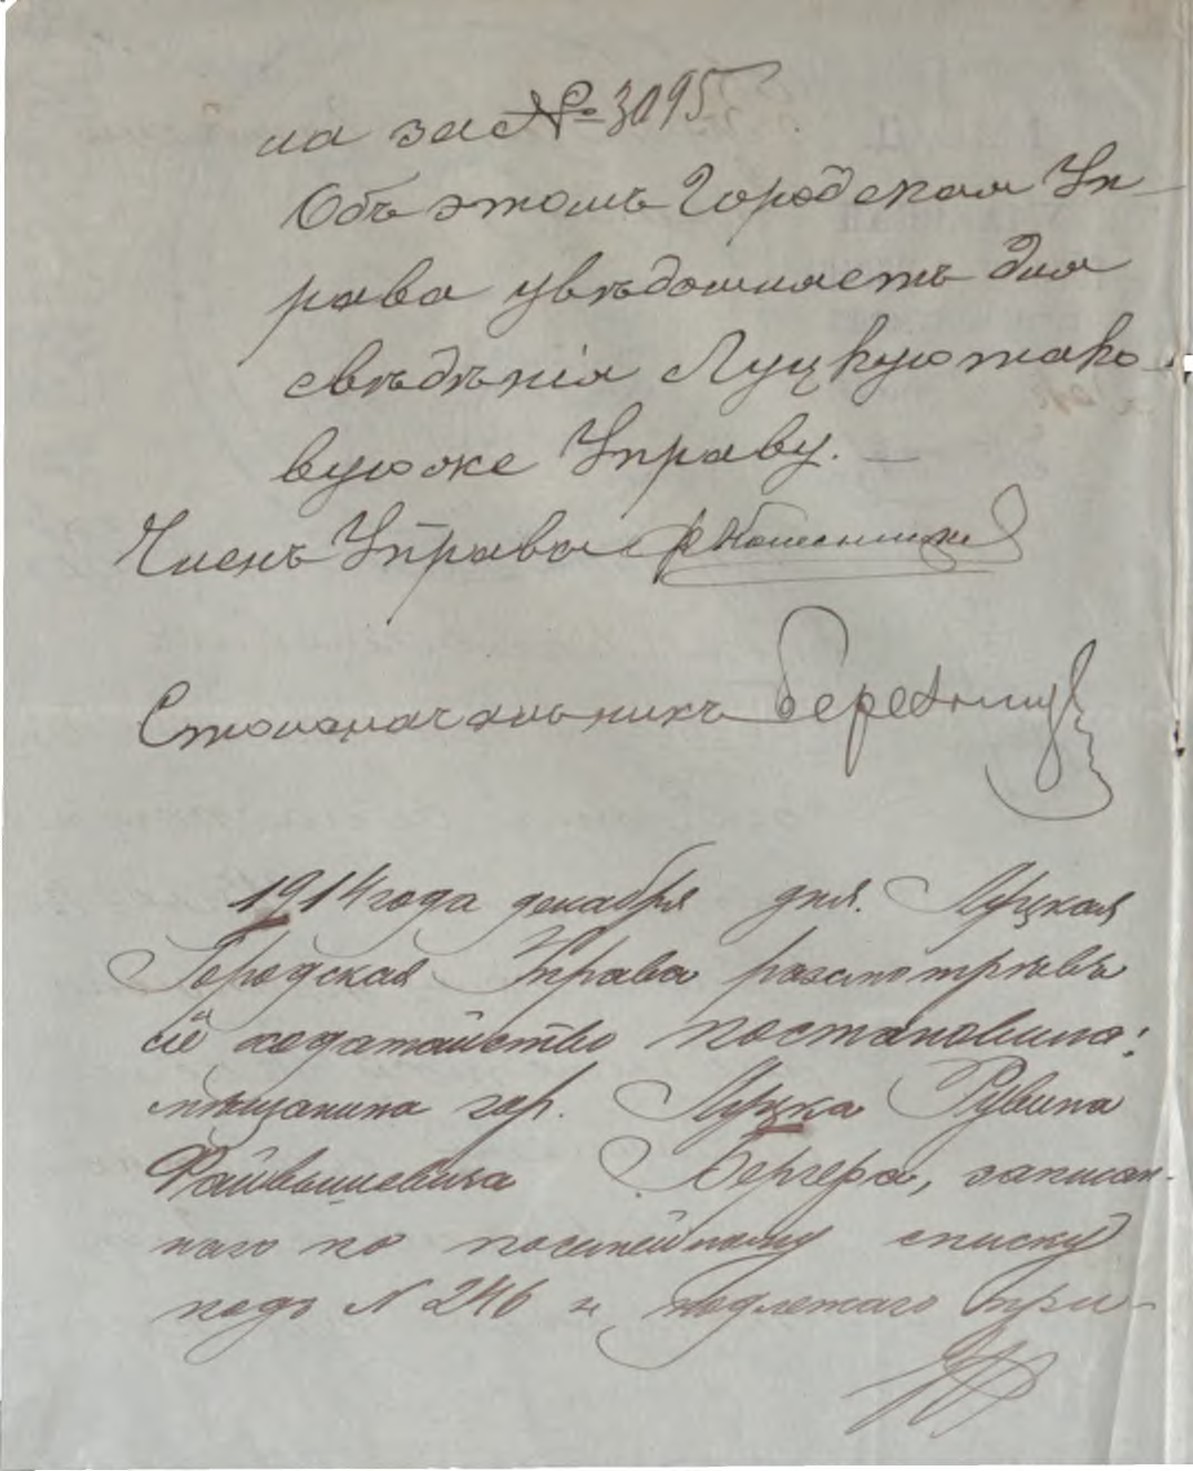 на за № 3095
Объ этомъ Городская Уп-
рава увѣдомляетъ для
свѣдѣнія Луцкую тако-
вую же Управу. —
Членъ Управы
Столоначальникъ
1914 года декабря дня. Луцкая
Городская Управа разсмотрѣвъ
сіе ходатайство постановила:
мѣщанина гор. Луцка Рувина
Файвышевича Бергера, записан-
наго по посемейному списку
подъ N 246 и подлежаго при-